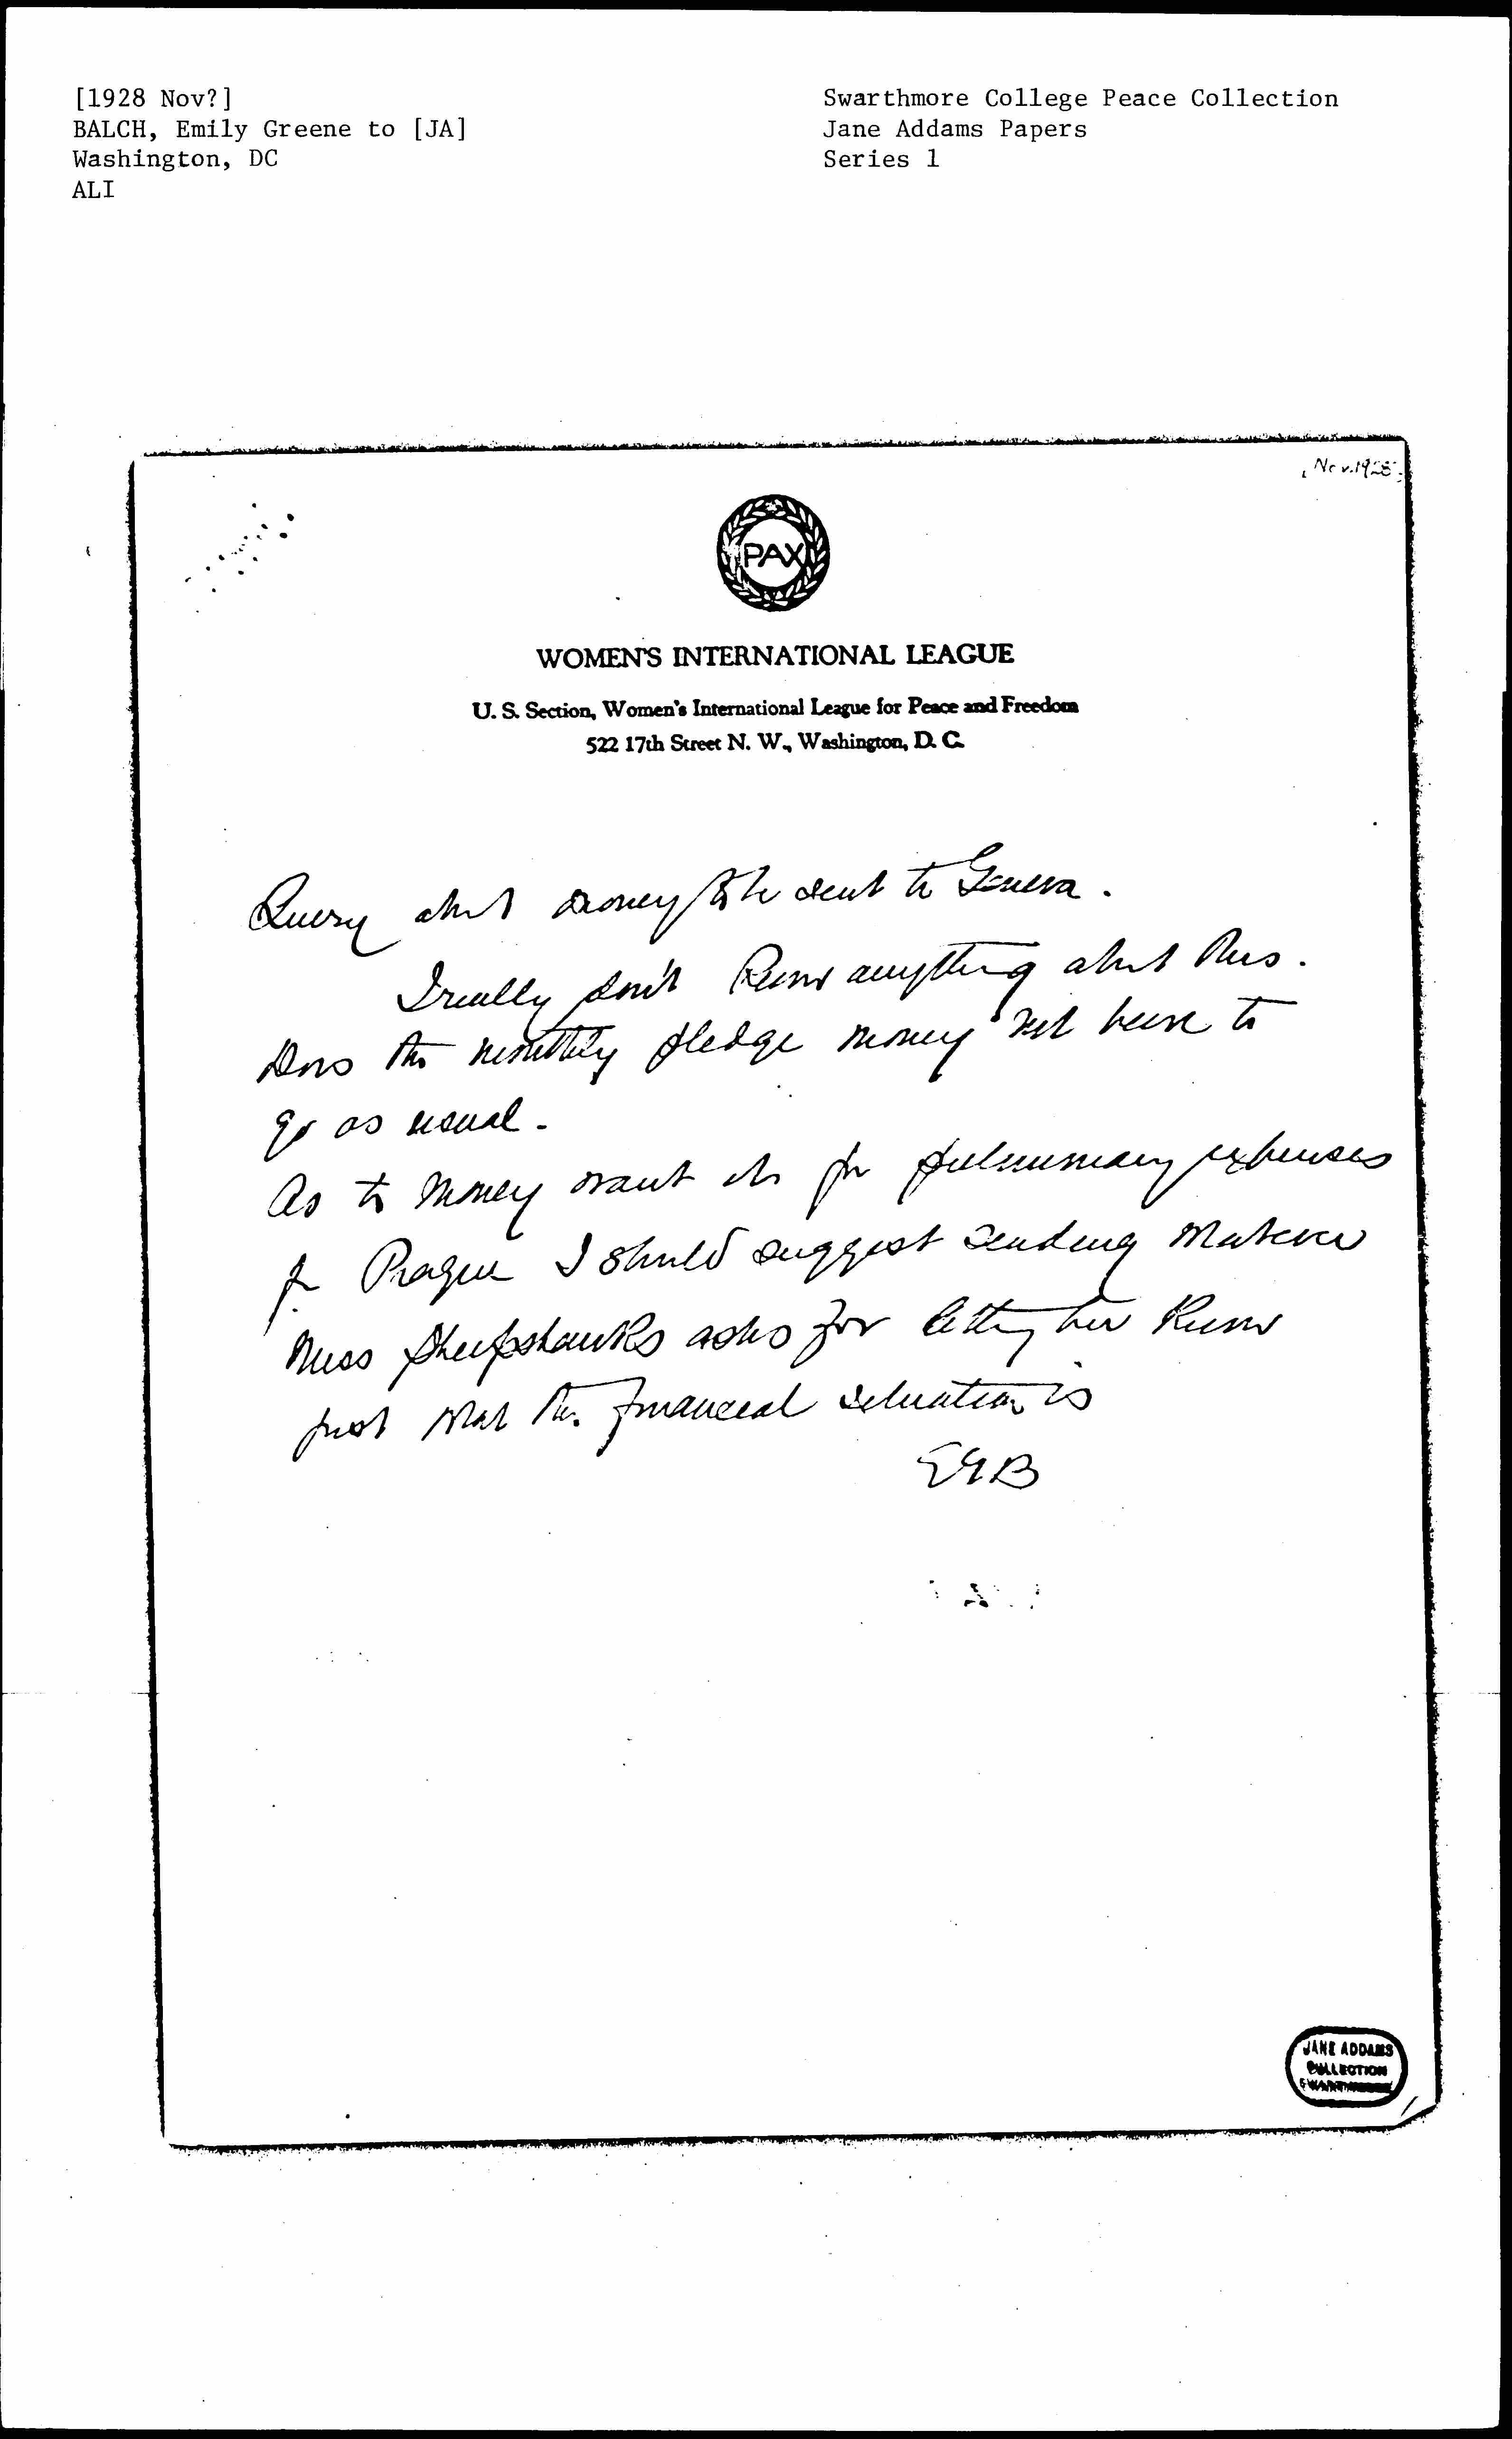 [1928 Nov?]
BALCH, Emily Greene to [JA]
Washington, DC
ALI
Swarthmore College Peace Collection
Jane Addams Papers
Series 1
Nov. 1928
PAX
WOMEN'S INTERNATIONAL LEAGUE
U. S. Section, Women's International League for Peace and Freedom
522 17th Street N. W., Washington, D. C.
Query about money to be sent to Geneva.
I really don't know anything about this.
Does the monthly pledge money not have to
go as usual.
As to money wanted for preliminary expenses
for Prague I should suggest sending whatever
Miss Sheepshanks asks for letting her know
just what the financial situation is
EGB
JANE ADDAMS
COLLECTION
SWARTHMORE